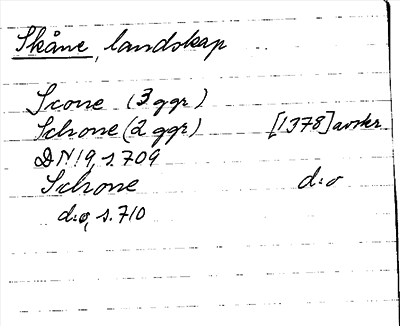 Skåne, landskap
Scone (3 ggr)
Schone (2 ggr) [1378] avskr.
DN 19, s. 709
Schone d:o
d:o, s. 710